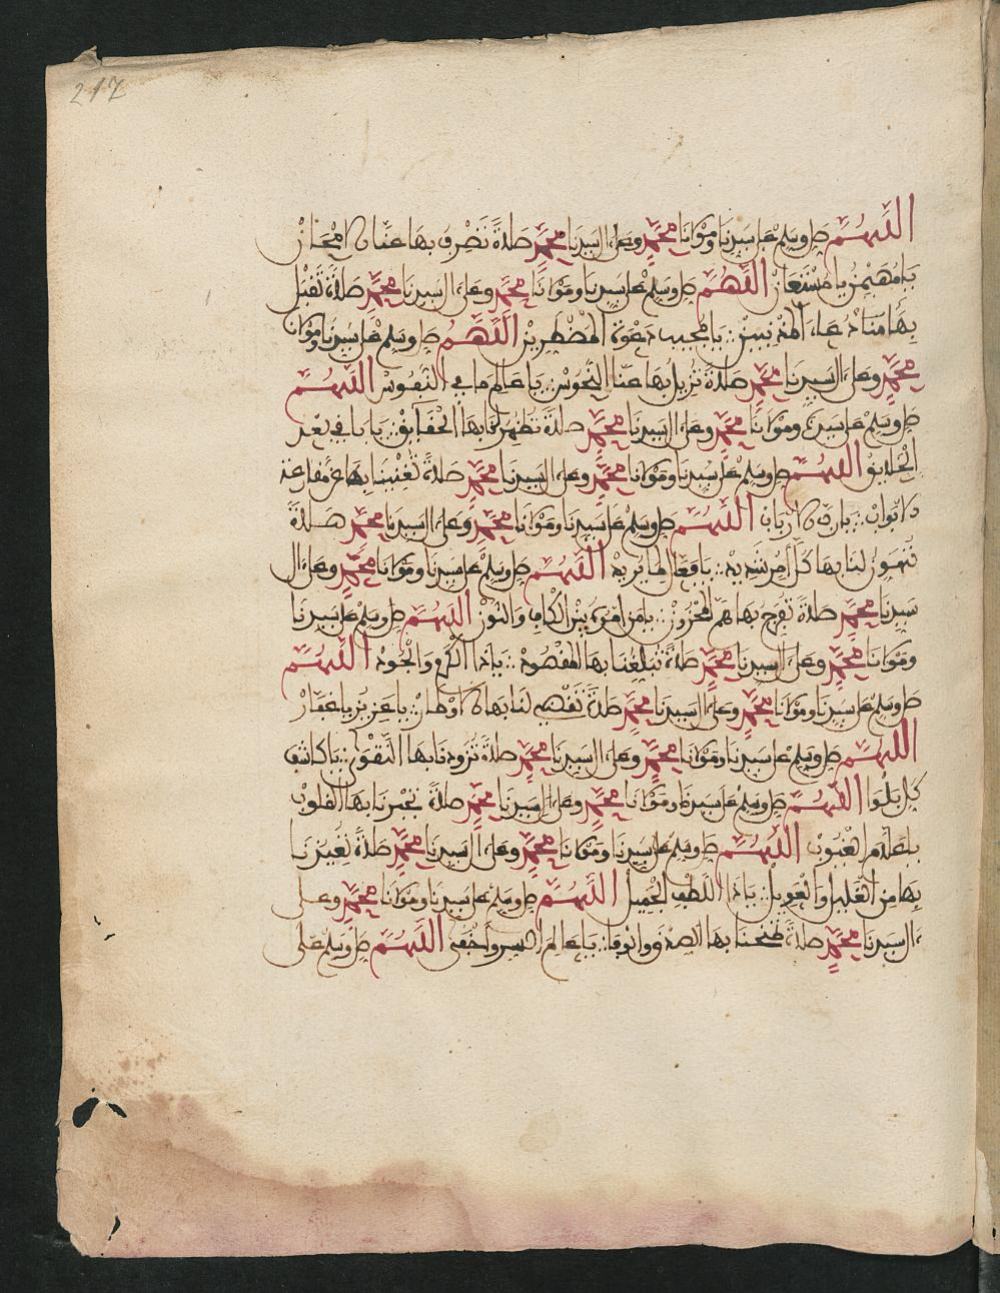 217
اللهم صل وسلم على سيدنا ومولانا محمد وعلى ال سيدنا محمد صلاة تصرف بها عنا
يا مهيمن يا مستعان اللهم صل وسلم على سيدنا ومولانا محمد وعلى ال سيدنا محمد صلاة تقبل
بها منا دعاء المذنبين يا مجيب دعوة المضطرين اللهم صل وسلم على سيدنا ومولانا
محمد وعلى ال سيدنا محمد صلاة تزيل بها عنا النحوس يا عالم ما في النفوس اللهم
صل وسلم على سيدنا ومولانا محمد وعلى ال سيدنا محمد صلاة تظهر لنا بها الحقايق يا باقي بعد
الخلايق اللهم صل وسلم على سيدنا ومولانا محمد وعلى ال سيدنا محمد صلاة تغنينا بها عن مقارعة
الابواب يا رب الارباب اللهم صل وسلم على سيدنا ومولانا محمد وعلى ال سيدنا محمد صلاة
تهون لنا بها كل امر شديد يا فعال لما يريد اللهم صل وسلم على سيدنا ومولانا محمد وعلى ال
سيدنا محمد صلاة تفرج بها هم المحزون يا من امره بين الكاف والنون اللهم صل وسلم على سيدنا
ومولانا محمد وعلى ال سيدنا محمد صلاة تبلغنا بها المقصود يا ذا الكرم والجود اللهم
صل وسلم على سيدنا ومولانا محمد وعلى ال سيدنا محمد صلاة تقضي لنا بها الاوطار يا عزيز يا غفار
اللهم صل وسلم على سيدنا ومولانا محمد وعلى ال سيدنا محمد صلاة تزودنا بها التقوى يا كاشف
كل بلوا اللهم صل وسلم على سيدنا ومولانا محمد وعلى ال سيدنا محمد صلاة بها القلوب
يا علام الغيوب اللهم صل وسلم على سيدنا ومولانا محمد وعلى ال سيدنا محمد صلاة
بها من والعويل يا ذا اللطف الجميل اللهم صل وسلم على سيدنا ومولانا محمد وعلى
ال سيدنا محمد صلاة تمنحنا بها الصدق والوفا يا عالم السر واخفى اللهم صل وسلم على